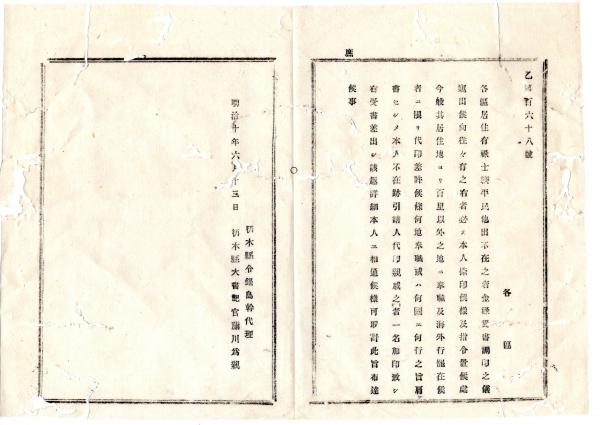 乙第百六十八號
各區
各區居住有祿士族平民他出不在之者金祿受書調印之儀
願出候向往々有之右者必ス本人捺印候樣及指令置候處
今般其居住地ヨリ百里以外之地ニ奉職及海外行罷在候
者ニ限リ代印差許候條何地奉職或ハ何國ニ何行之旨肩
書セシメ本人不在跡引請人代印親戚之者一名加印致シ
右受書差出シ該趣詳細本人ニ相通候樣可取計此旨布達
候事
鹿
明治十年六月十三日
栃木縣令鍋島幹代理
栃木縣大書記官藤川爲親